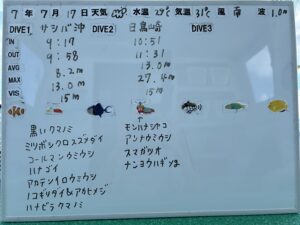 7年 7月 17日 天気 水温 29℃ 気温 31℃ 風 南 波 1.0m
DIVE1 サシバ沖 DIVE2 日鳥崎 DIVE3
IN 9:17 10:51
OUT 9:58 11:31
AVG 8.2m 13.0m
MAX 13.0m 27.4m
VIS 15m 15m
黒いクマノミ モンハナシャコ
ミツボシクロスズメダイ アンナウミウシ
コールマンウミウシ スマガツオ
ハナゴイ ナンヨウハギyg
アカテンイロウミウシ
ノコギリダイ&アカヒメジ
ハナビラクマノミ